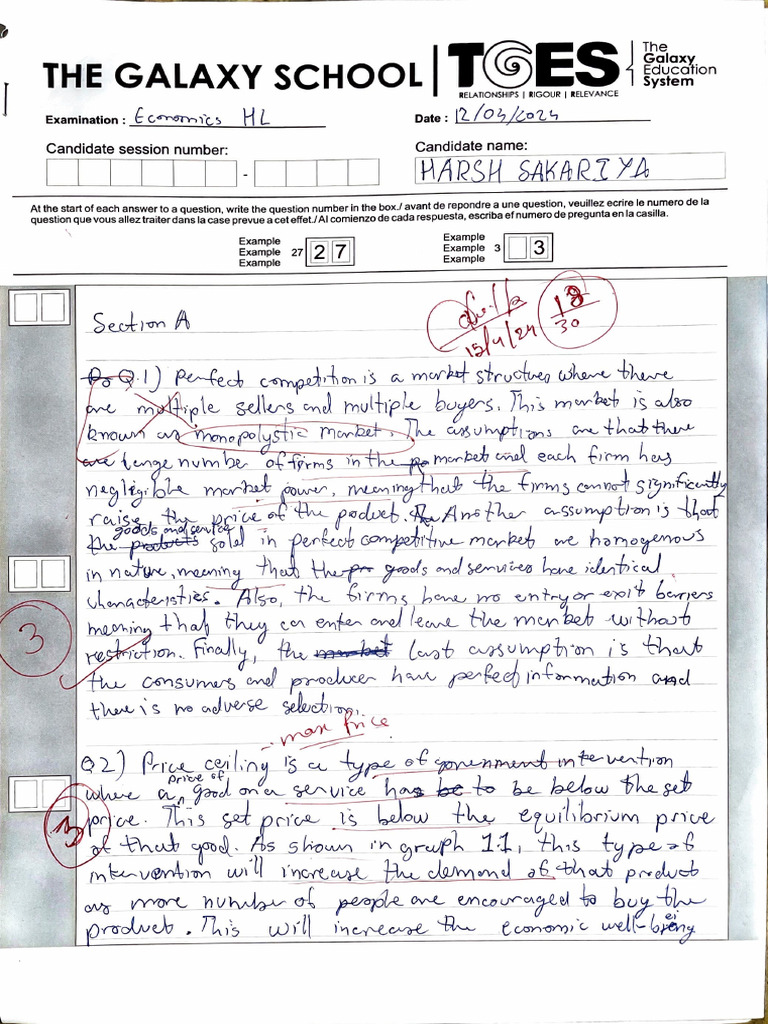 THE GALAXY SCHOOL
TGES
RELATIONSHIPS | RIGOUR | RELEVANCE
The
Galaxy
Education
System
Examination : Economics HL
Date : 12/03/2024
Candidate session number:
Candidate name:
HARSH SAKARIYA
At the start of each answer to a question, write the question number in the box./ avant de repondre a une question, veuillez ecrire le numero de la
question que vous allez traiter dans la case prevue a cet effet./ Al comienzo de cada respuesta, escriba ef numero de pregunta en la casilla.
Example
Example 27 27
Example
Example
Example 3 3
Example
Section A
15/4/24
18
30
Q.1) Perfect competition is a market structures where there
are multiple sellers and multiple buyers. This market is also
known as monopolystic market. The assumptions are that there
are large number of firms in the market and each firm has
negligible market power, meaning that the firms cannot significantly
raise the price of the poduct. Another assumption is that
the goods and services sold in perfect competitive market are homogenous
in nature, meaning that the goods and services have identical
characteristics. Also, the firms have no entry or exit barriers
meaning that they can enter and leave the market without
restriction. Finally, the last assumption is that
the consumers and producer have perfect information and
there is no adverse selection.
3
max price
Q2) Price ceiling is a type of government intervention
where a price of good or a service has to be below the set
price. This set price is below the equilibrium price
of that good. As shown in graph 1.1, this type of
intervention will increase the demand of that product
as more number of people are encouraged to buy the
product. This will increase the economic well-being
3